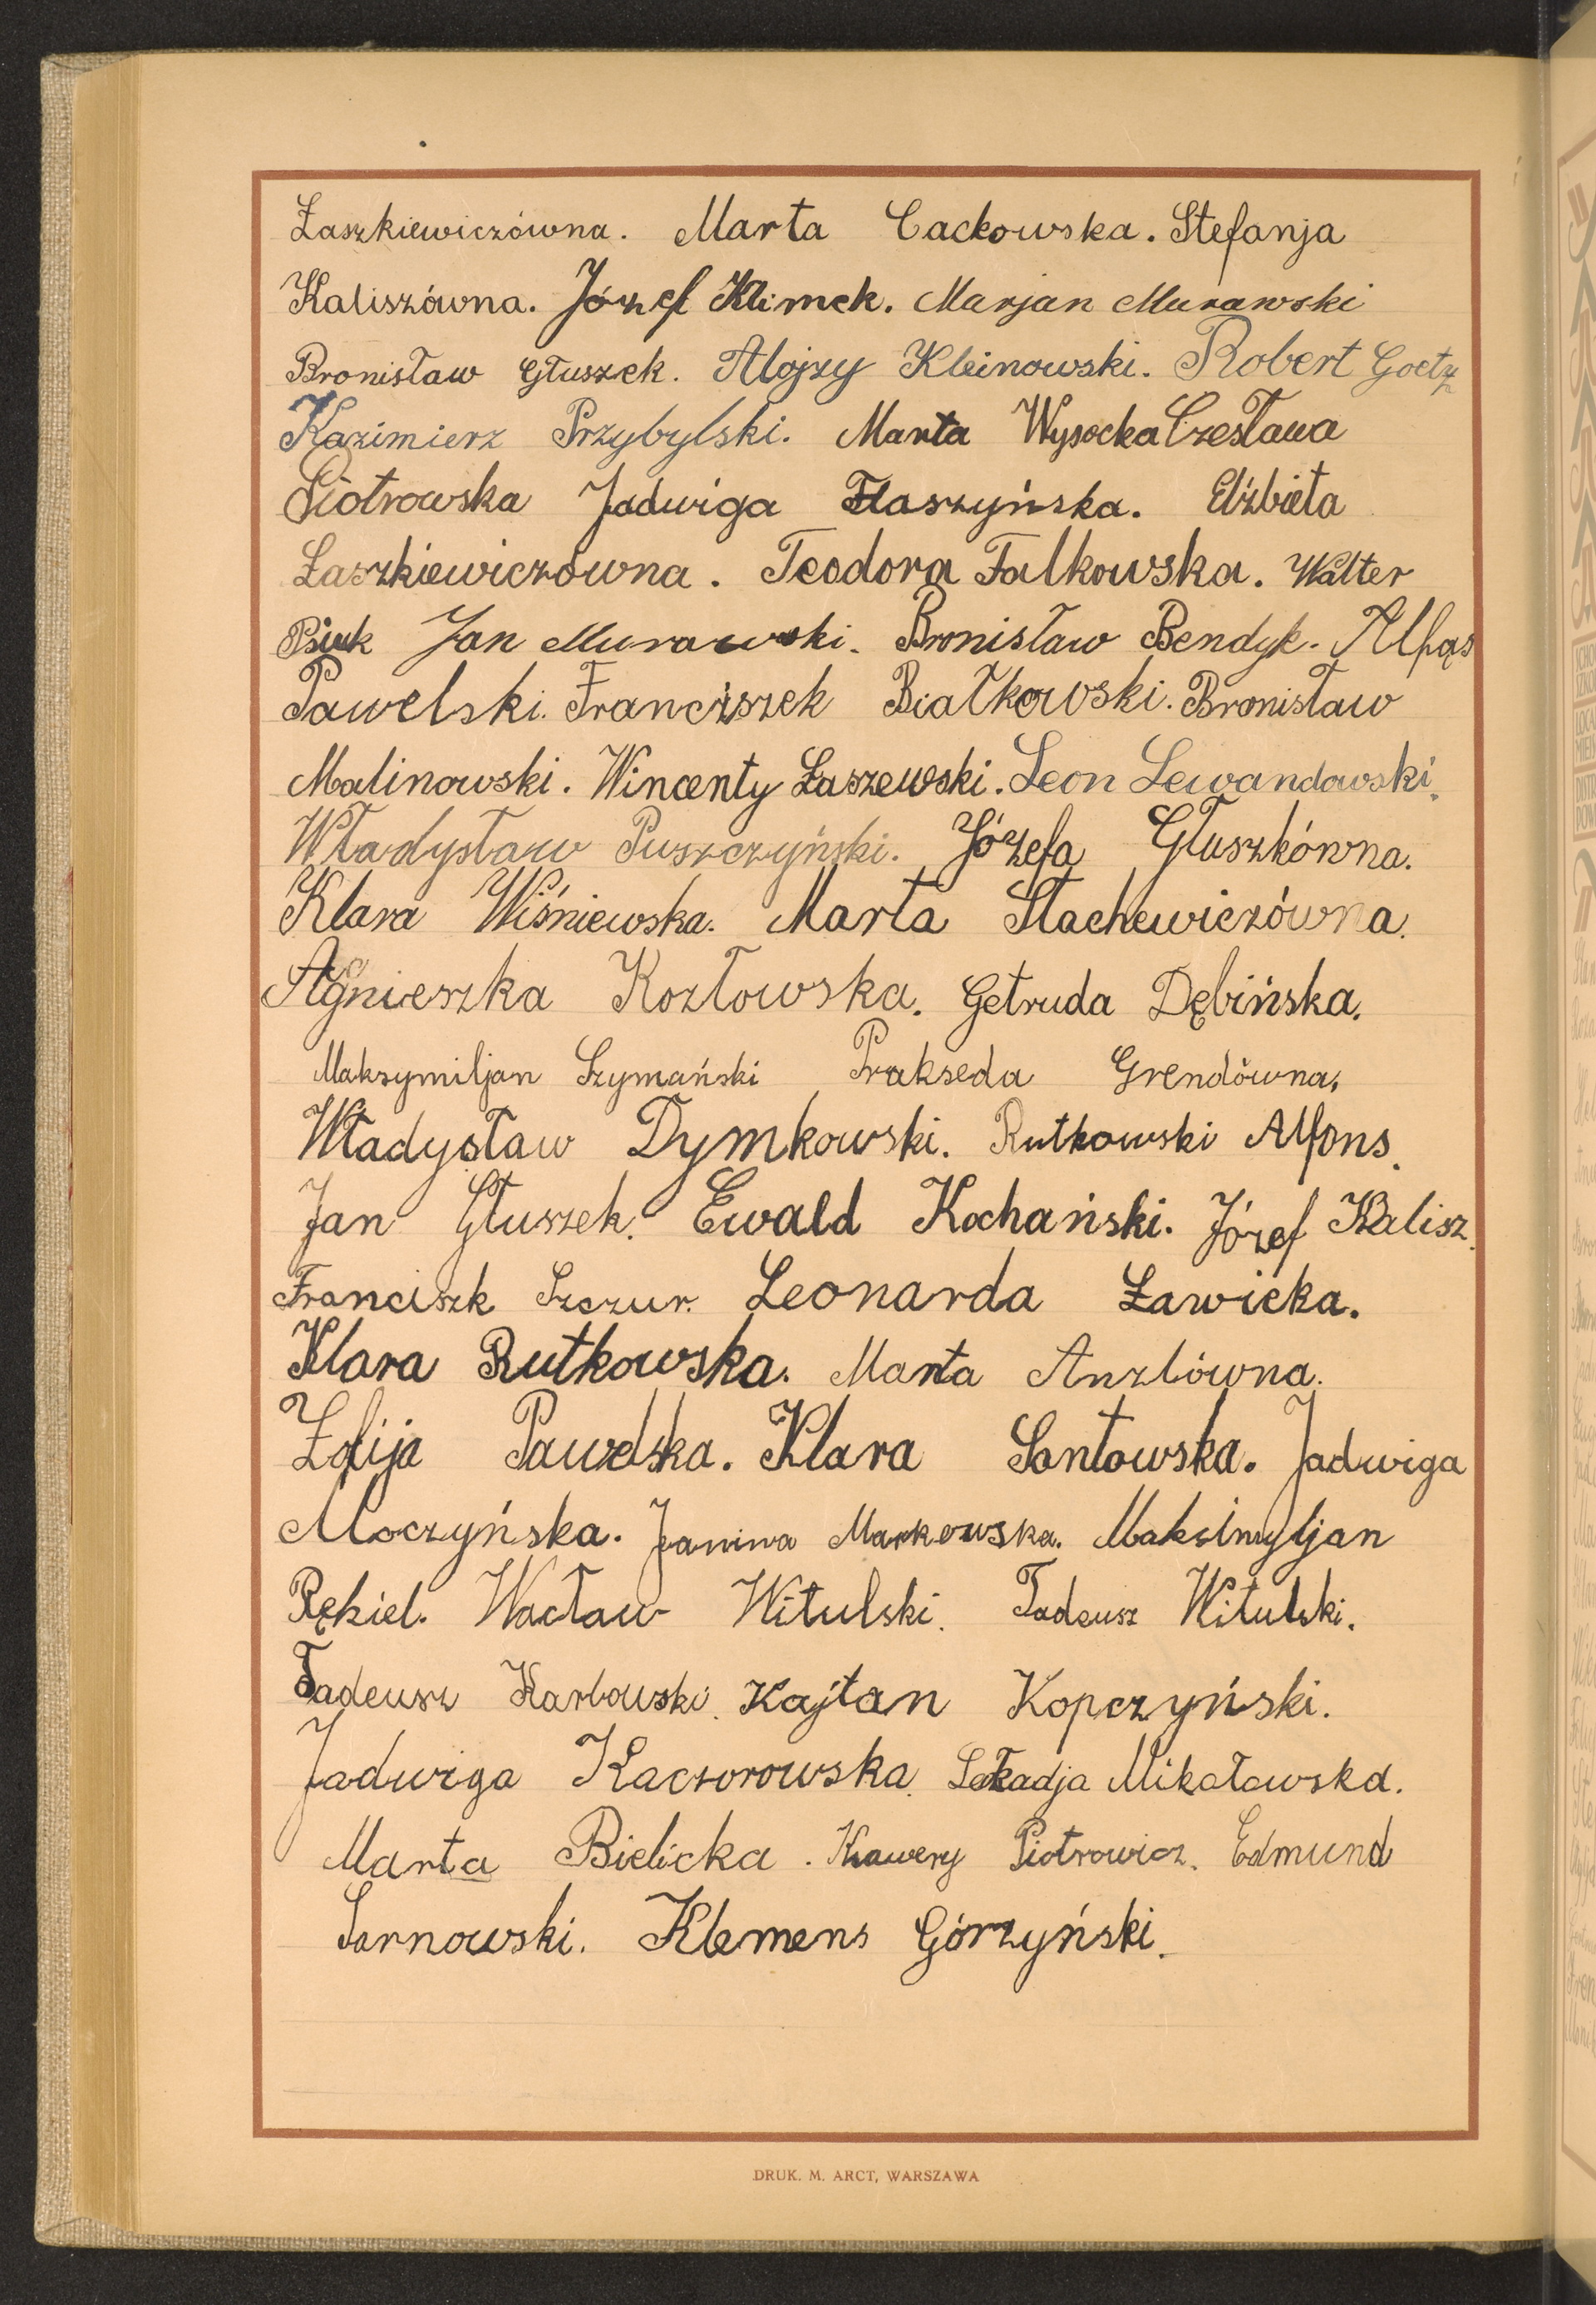 Łaszkiewiczówna. Marta Cackowska. Stefanja
Kaliszówna. Józef Klimek. Marjan Murawski
Bronisław Głuszek. Alojzy Kleinowski. Robert Goetz
Kazimierz Przybylski. Marta Wysocka Czesława
Piotrowska Jadwiga Flaszyńska. Elżbieta
Łaszkiewiczówna. Teodora Falkowska. Walter
Jan Murawski. Bronisław Bendyk. Alfąs
Pawelski. Franciszek Białkowski. Bronisław
Malinowski. Wincenty Łaszewski. Leon Lewandowski.
Władysław Puszczyński. Józefa Głuszkówna.
Klara Wiśniewska. Marta Stachewiczówna.
Agnieszka Kozłowska. Getruda Dębińska.
Maksymiljan Szymański Prakseda Grendówna,
Władysław Dymkowski. Rutkowski Alfons.
Jan Głuszek. Ewald Kochański. Józef Kalisz.
Franciszk Szczur. Leonarda Ławicka.
Klara Rutkowska. Marta Anzlówna.
Zofija Pawelska. Klara Sontowska. Jadwiga
Moczyńska. Janina Markowska. Maksimyljan
Rękiel. Wacław Witulski. Tadeusz Witulski.
Tadeusz Karbowski. Kajtan Kopczyński.
Jadwiga Kaczorowska. Mikołowska.
Marta Bielicka. Ksawery Piotrowicz. Edmund
Sarnowski. Klemens Górzyński.
DRUK. M. ARCT, WARSZAWA